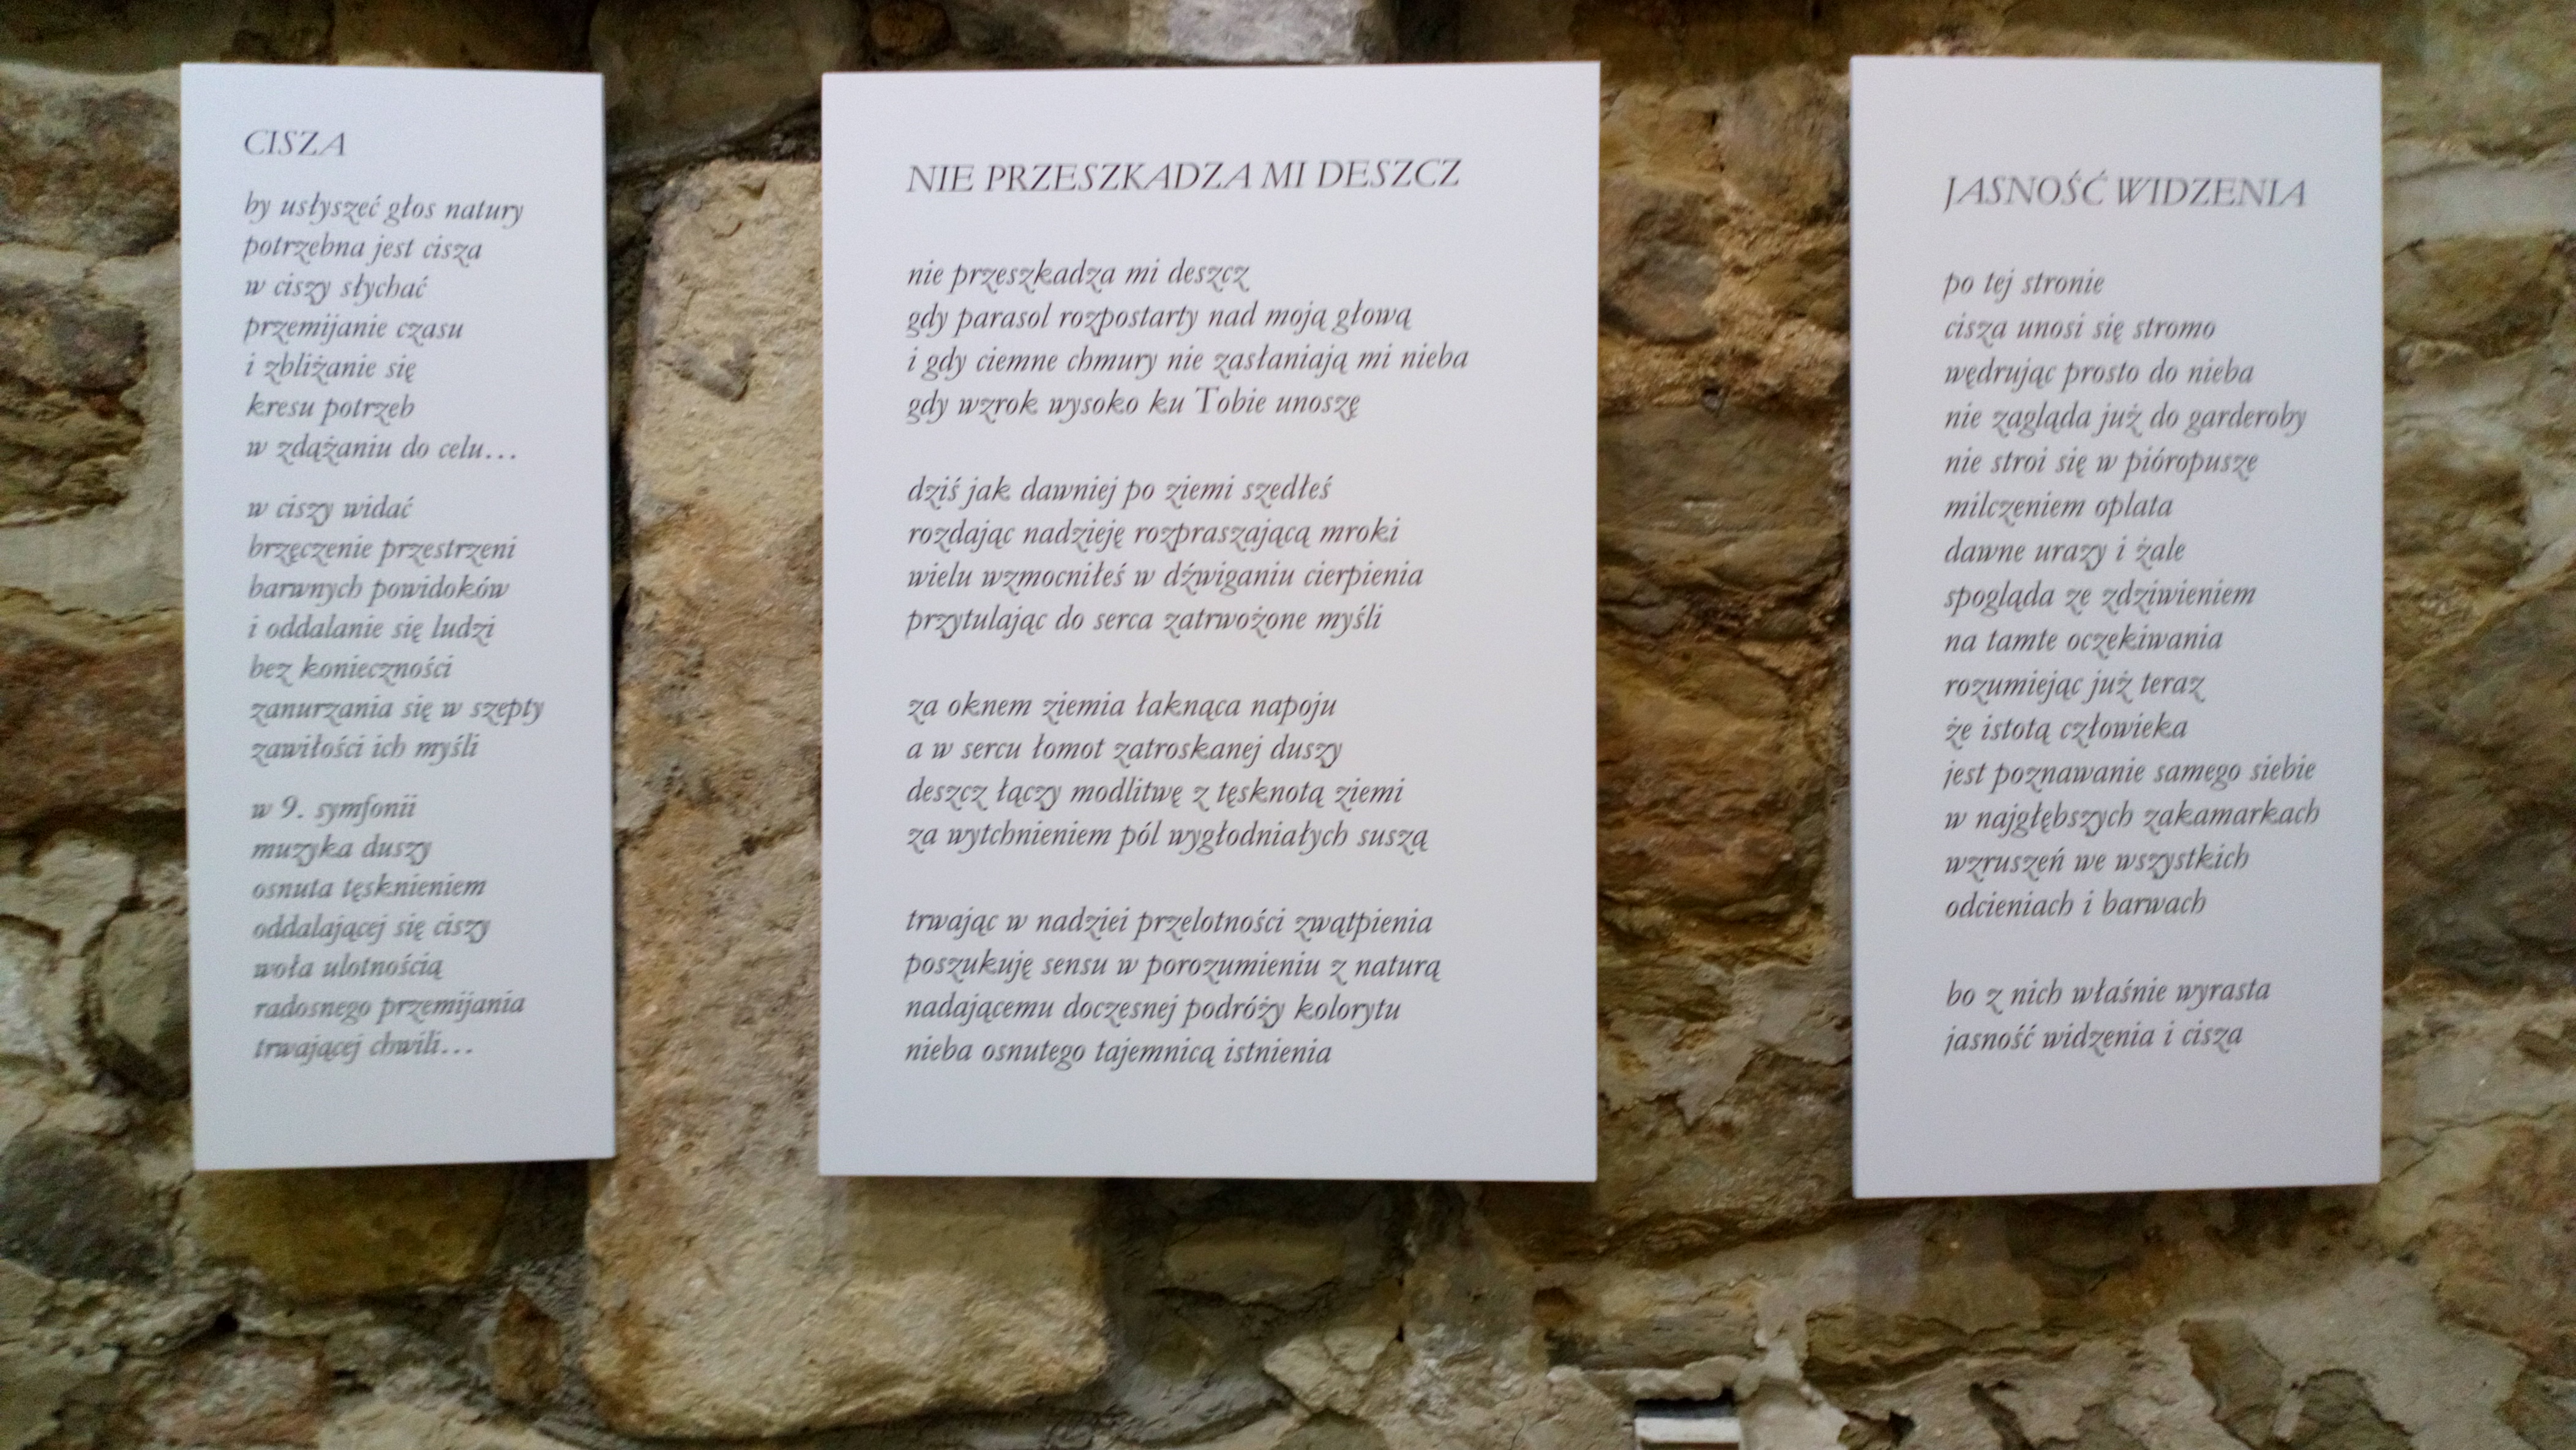 CISZA
by usłyszeć głos natury
potrzebna jest cisza
w ciszy słychać
przemijanie czasu
i zbliżanie się
kresu potrzeb
w zdążaniu do celu...
w ciszy widać
brzęczenie przestrzeni
barwnych powidoków
i oddalanie się ludzi
bez konieczności
zanurzania się w szepty
zawiłości ich myśli
w 9. symfonii
muzyka duszy
osnuta tęsknieniem
oddalającej się ciszy
woła ulotnością
radosnego przemijania
trwającej chwili...
NIE PRZESZKADZA MI DESZCZ
nie przeszkadza mi deszcz
gdy parasol rozpostarty nad moją głową
i gdy ciemne chmury nie zasłaniają mi nieba
gdy wzrok wysoko ku Tobie unoszę
dziś jak dawniej po ziemi szedłeś
rozdając nadzieję rozpraszającą mroki
wielu wzmocniłeś w dźwiganiu cierpienia
przytulając do serca zatrwożone myśli
za oknem ziemia łaknąca napoju
a w sercu łomot zatroskanej duszy
deszcz łączy modlitwę z tęsknotą ziemi
za wytchnieniem pól wygłodniałych suszą
trwając w nadziei przelotności zwątpienia
poszukuję sensu w porozumieniu z naturą
nadającemu doczesnej podróży kolorytu
nieba osnutego tajemnicą istnienia
JASNOŚĆ WIDZENIA
po tej stronie
cisza unosi się stromo
wędrując prosto do nieba
nie zagląda już do garderoby
nie stroi się w pióropusze
milczeniem oplata
dawne urazy i żale
spogląda ze zdziwieniem
na tamte oczekiwania
rozumiejąc już teraz
że istotą człowieka
jest poznawanie samego siebie
w najgłębszych zakamarkach
wzruszeń we wszystkich
odcieniach i barwach
bo z nich właśnie wyrasta
jasność widzenia i cisza